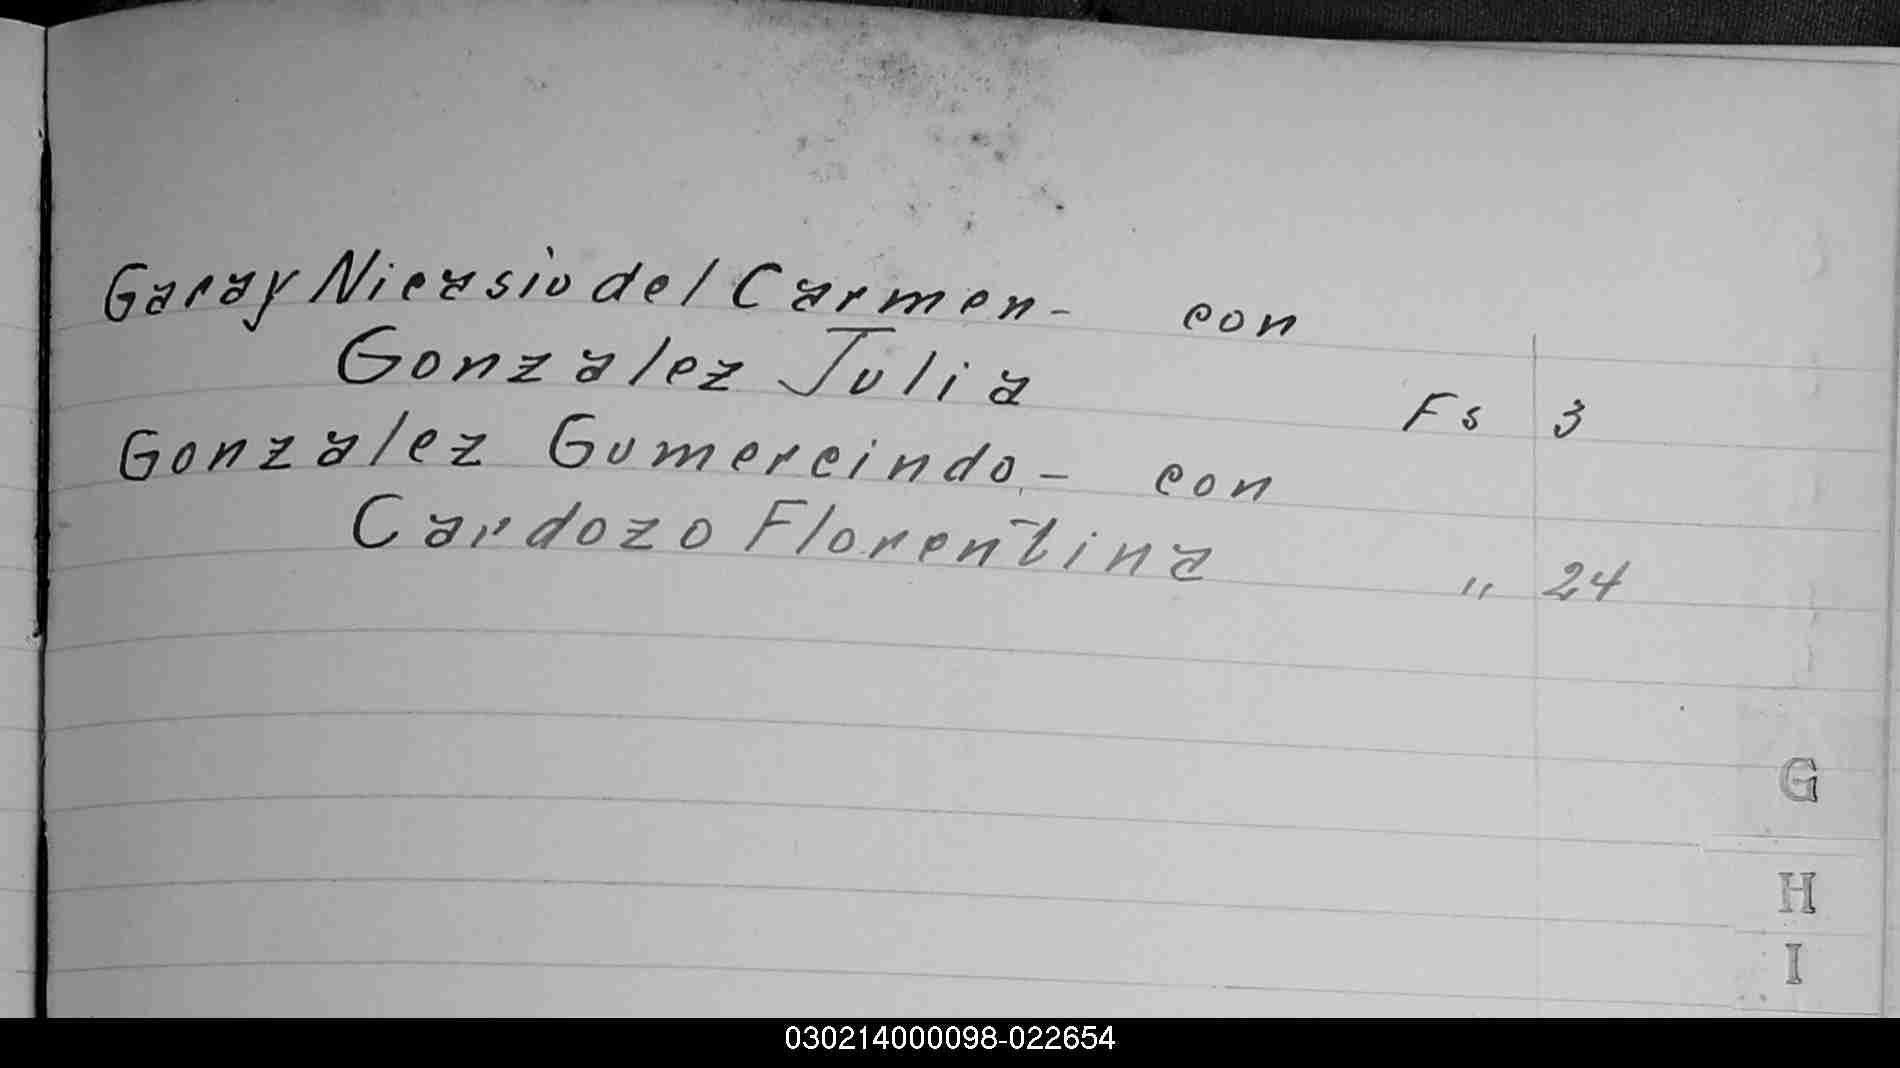 Garay Nicasio del Carmen - con
Gonzalez Julia Fs 3
Gonzalez Gumercindo - con
Cardozo Florentina " 24
G
H
I
030214000098-022654